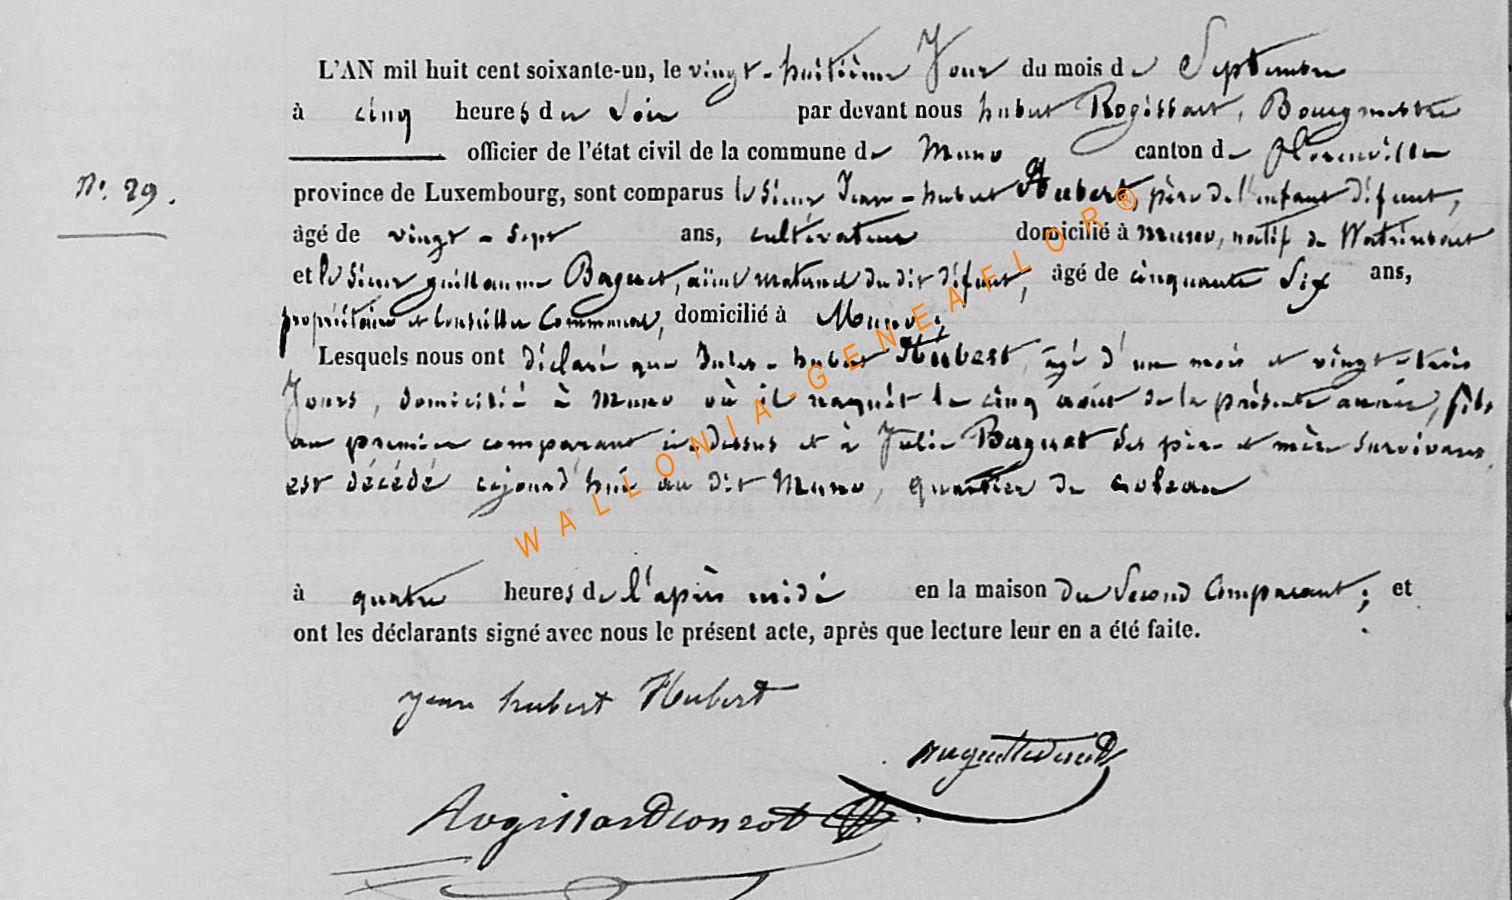 L'AN mil huit cent soixante-un, le vingt-huitième Jour du mois de Septembre
à cinq heures du Soir par devant nous hubert Rogissart, Bourgmestre
officier de l'état civil de la commune de Muno canton de Florenville
N°. 29. province de Luxembourg, sont comparus le Sieur Jean-hubert Hubert, père de l'enfant défunt,
âgé de vingt-sept ans, cultivateur domicilié à Muno, natif de Watrinsart
et le Sieur guillaume Baguet, aïeul maternel du dit défunt, âgé de cinquante Six ans,
propriétaire et Conseiller Communal, domicilié à Muno;
Lesquels nous ont déclaré que Jules-hubert Hubert, âgé d'un mois et vingt-trois
Jours, domicilié à Muno où il naquit le cinq août de la présente année, fils
au premier comparant ci-dessus et à Julie Baguet ses père et mère survivans,
est décédé aujourd'hui au dit Muno, quartier de
à quatre heures de l'après midi en la maison du Second Comparant; et
ont les déclarants signé avec nous le présent acte, après que lecture leur en a été faite.
jean hubert Hubert
WALLONIA-GENEAFLOR®